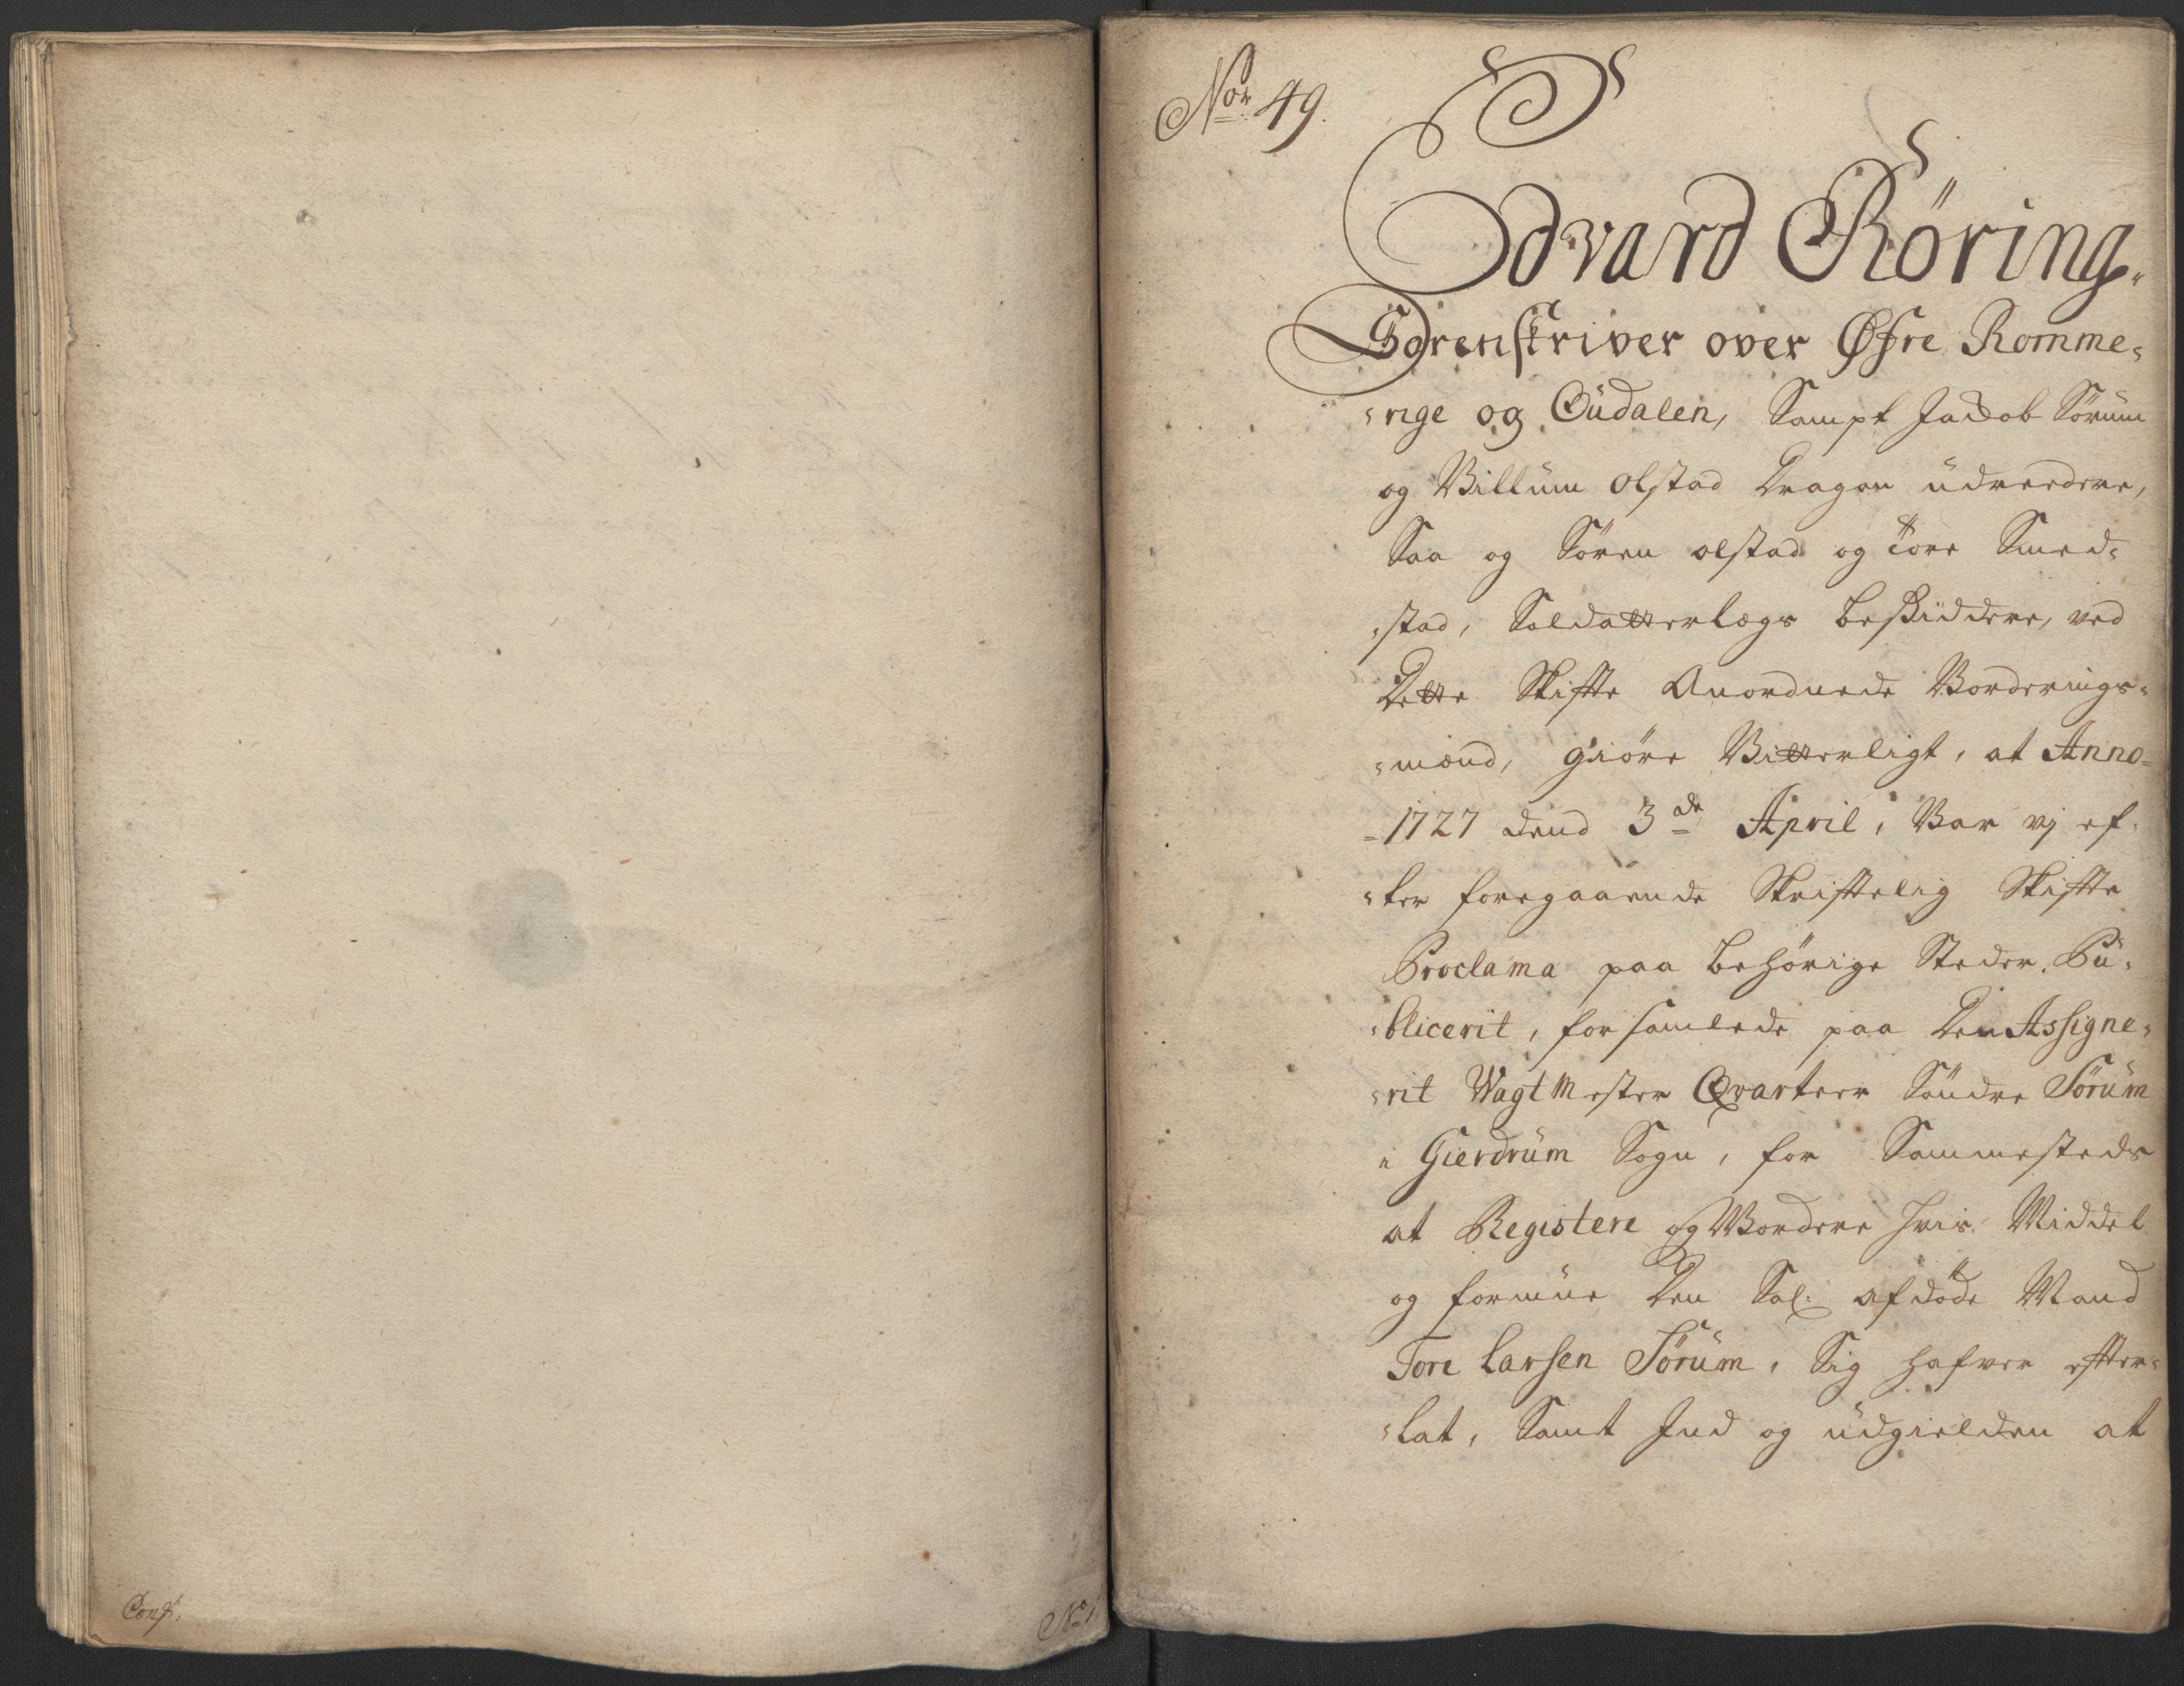 Conf:
No 1
Nor 49.
Edvard Röring.
Sorenskriver over Øfre Romme¬
¬rige og Oüdalen, Sampt Jacob Sörüm
og Billüm Olstad Dragon üdreedere,
Saa og Sören olstad og Tore Smed¬
¬stad, Soldatterlægs beskiddere, ved
Dette Skiffte Anordnede Vorderings¬
¬mænd, giöre Vitterligt, at Anno
1727 dend 3de April, Var vj ef¬
¬ter foregaaende Skrifftelig Skiffte
Proclama paa behörige Steder. Pü¬
¬blicerit, forsamlede paa Den Assigne¬
¬rit WagtMester Qvarteer Söndre Sörüm
i Gierdrüm Sogn, for Sammesteds
at Registere og Vordere hvis Middel
og formüe Den Sal: afdöde Mand
Tore Larsen Sörüm, Sig hafver effter¬
¬lat, Samt Ind og üdgielden at